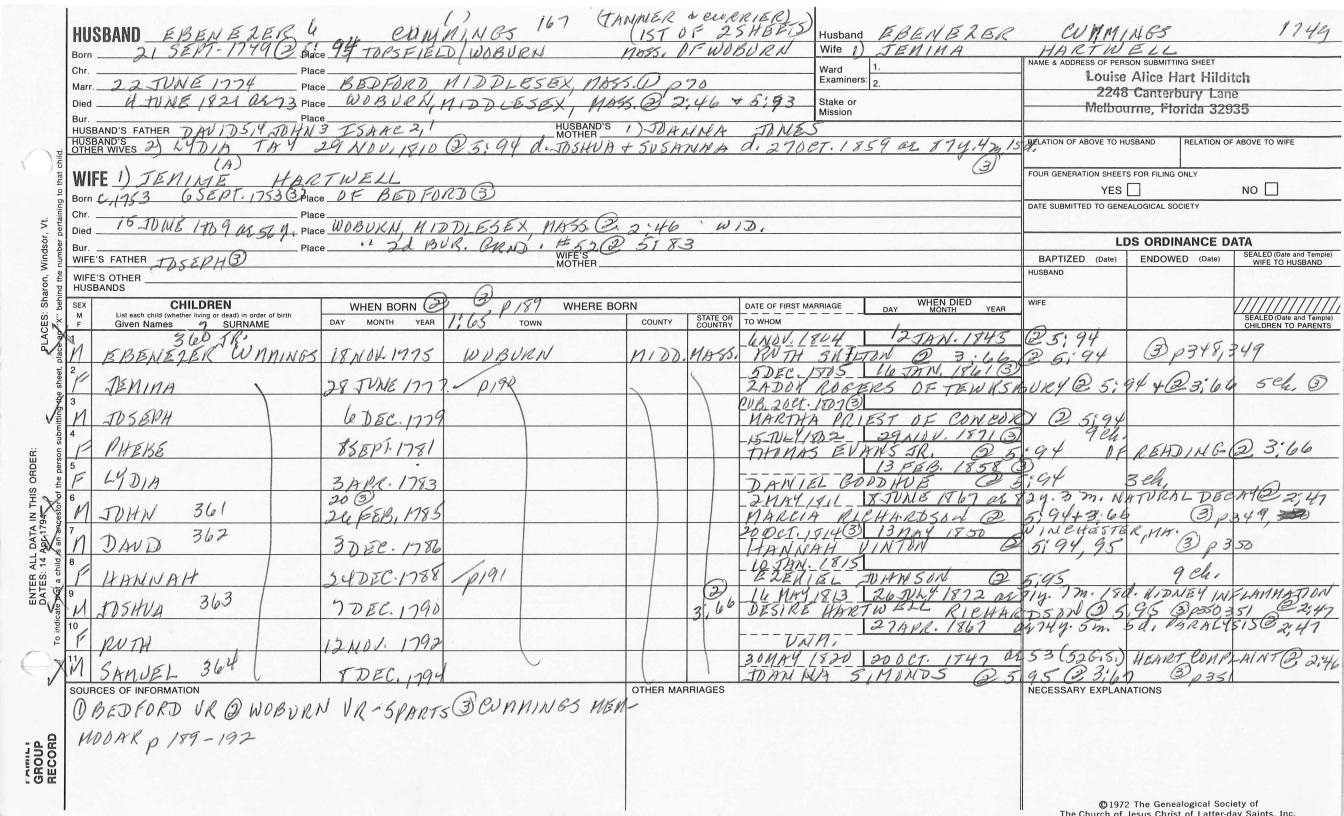 HUSBAND EBENEZER 6 CUMMINGS 167 (TANNER & CURRIER)
(1ST OF 2 SHEETS)
Born 21 SEPT. 1749 ② 5:94 Place TOPSFIELD/WOBURN MASS. OF WOBURN
Chr. Place
Marr. 22 JUNE 1774 Place BEDFORD, MIDDLESEX, MASS. ① p70
Died 4 JUNE 1821 ae 73 Place WOBURN, MIDDLESEX, MASS. ② 2:46 & 5:93
Bur. Place
HUSBAND'S FATHER DAVID 5,4 JOHN 3 ISAAC 2,1 HUSBAND'S MOTHER 1) JOANNA JONES
HUSBAND'S OTHER WIVES 2) LYDIA TAY 29 NOV. 1810 ② 5:94 d. JOSHUA & SUSANNA d. 27 OCT. 1859 ae 87y. 4m 15d. ③
Husband EBENEZER CUMMINGS 1749
Wife 1) JEMIMA HARTWELL
Ward Examiners: 1.
2.
Stake or Mission
NAME & ADDRESS OF PERSON SUBMITTING SHEET
Louise Alice Hart Hilditch
2248 Canterbury Lane
Melbourne, Florida 32935
RELATION OF ABOVE TO HUSBAND RELATION OF ABOVE TO WIFE
FOUR GENERATION SHEETS FOR FILING ONLY
YES NO
DATE SUBMITTED TO GENEALOGICAL SOCIETY
(A)
WIFE 1) JEMIME HARTWELL
Born c. 1753 6 SEPT. 1753 ③ Place OF BEDFORD ③
Chr. Place
Died 15 JUNE 1809 ae 56y. Place WOBURN, MIDDLESEX, MASS. ② 2:46 WID.
Bur. Place " 2d BUR. GRND. #52 ② 5:83
WIFE'S FATHER JOSEPH ③ WIFE'S MOTHER
WIFE'S OTHER HUSBANDS
LDS ORDINANCE DATA
BAPTIZED (Date) ENDOWED (Date) SEALED (Date and Temple) WIFE TO HUSBAND
HUSBAND
WIFE
SEALED (Date and Temple) CHILDREN TO PARENTS
SEX M F CHILDREN
List each child (whether living or dead) in order of birth
Given Names SURNAME
WHEN BORN ② DAY MONTH YEAR
1:65 ③ p189 WHERE BORN TOWN COUNTY STATE OR COUNTRY
DATE OF FIRST MARRIAGE TO WHOM WHEN DIED DAY MONTH YEAR
1 M 360 JR. EBENEZER 7 CUMMINGS 18 NOV. 1775 WOBURN MIDD. MASS. 6 NOV. 1804 12 JAN. 1845 ② 5:94
RUTH SKILTON ② 3:66 ② 5:94 ③ p348,349
2 F JEMIMA 28 JUNE 1777 p190 5 DEC. 1705 16 JAN. 1861 ③
ZADOK ROGERS OF TEWKSBURY ② 5:94 & ② 3:66 5ch. ③
3 M JOSEPH 6 DEC. 1779 PUB. 2 OCT. 1807 ③
MARTHA PRIEST OF CONCORD ② 5:94
4 F PHEBE 8 SEPT. 1781 15 JULY 1802 29 NOV. 1871 ③ 9ch.
THOMAS EVANS JR. ② 5:94 OF READING ② 3:66
5 F LYDIA 3 APR. 1783 13 FEB. 1858 ③
DANIEL GOODHUE ② 5:94 3ch.
6 M JOHN 361 20 ③ 26 FEB. 1785 2 MAY 1811 8 JUNE 1867 ae 82y. 3m. NATURAL DECAY ② 2:47
MARCIA RICHARDSON ② 5:94 & 3:66 ③ p349,
7 M DAVID 362 3 DEC. 1786 20 OCT. 1814 ③ 13 MAY 1850 WINCHESTER, MA.
HANNAH VINTON ② 5:94, 95 ③ p350
8 F HANNAH 24 DEC. 1788 p191 10 JAN. 1815
EZEKIEL JOHNSON ② 5:95 9ch.
9 M JOSHUA 363 7 DEC. 1790 ② 3:66 16 MAY 1813 26 JULY 1872 ae 81y. 7m. 18d. KIDNEY INFLAMMATION
DESIRE HARTWELL RICHARDSON ② 5:95 ③ p350 351 ② 2:47
10 F RUTH 12 NOV. 1792 27 APR. 1867 ae 74y. 5m. 5d. PARALYSIS ② 2:47
UNM.
11 M SAMUEL 364 8 DEC. 1794 30 MAY 1820 20 OCT. 1847 ae 53 (52 G.S.) HEART COMPLAINT ② 2:46
JOANNA SIMONDS ② 5:95 ② 3:67 ③ p351
SOURCES OF INFORMATION
① BEDFORD VR ② WOBURN VR-5 PARTS ③ CUMMINGS MEM-
p 189-192
OTHER MARRIAGES
NECESSARY EXPLANATIONS
ENTER ALL DATA IN THIS ORDER:
PLACES: Sharon, Windsor, Vt.
DATES: 14 Apr 1794
FAMILY GROUP RECORD
©1972 The Genealogical Society of
The Church of Jesus Christ of Latter-day Saints, Inc.